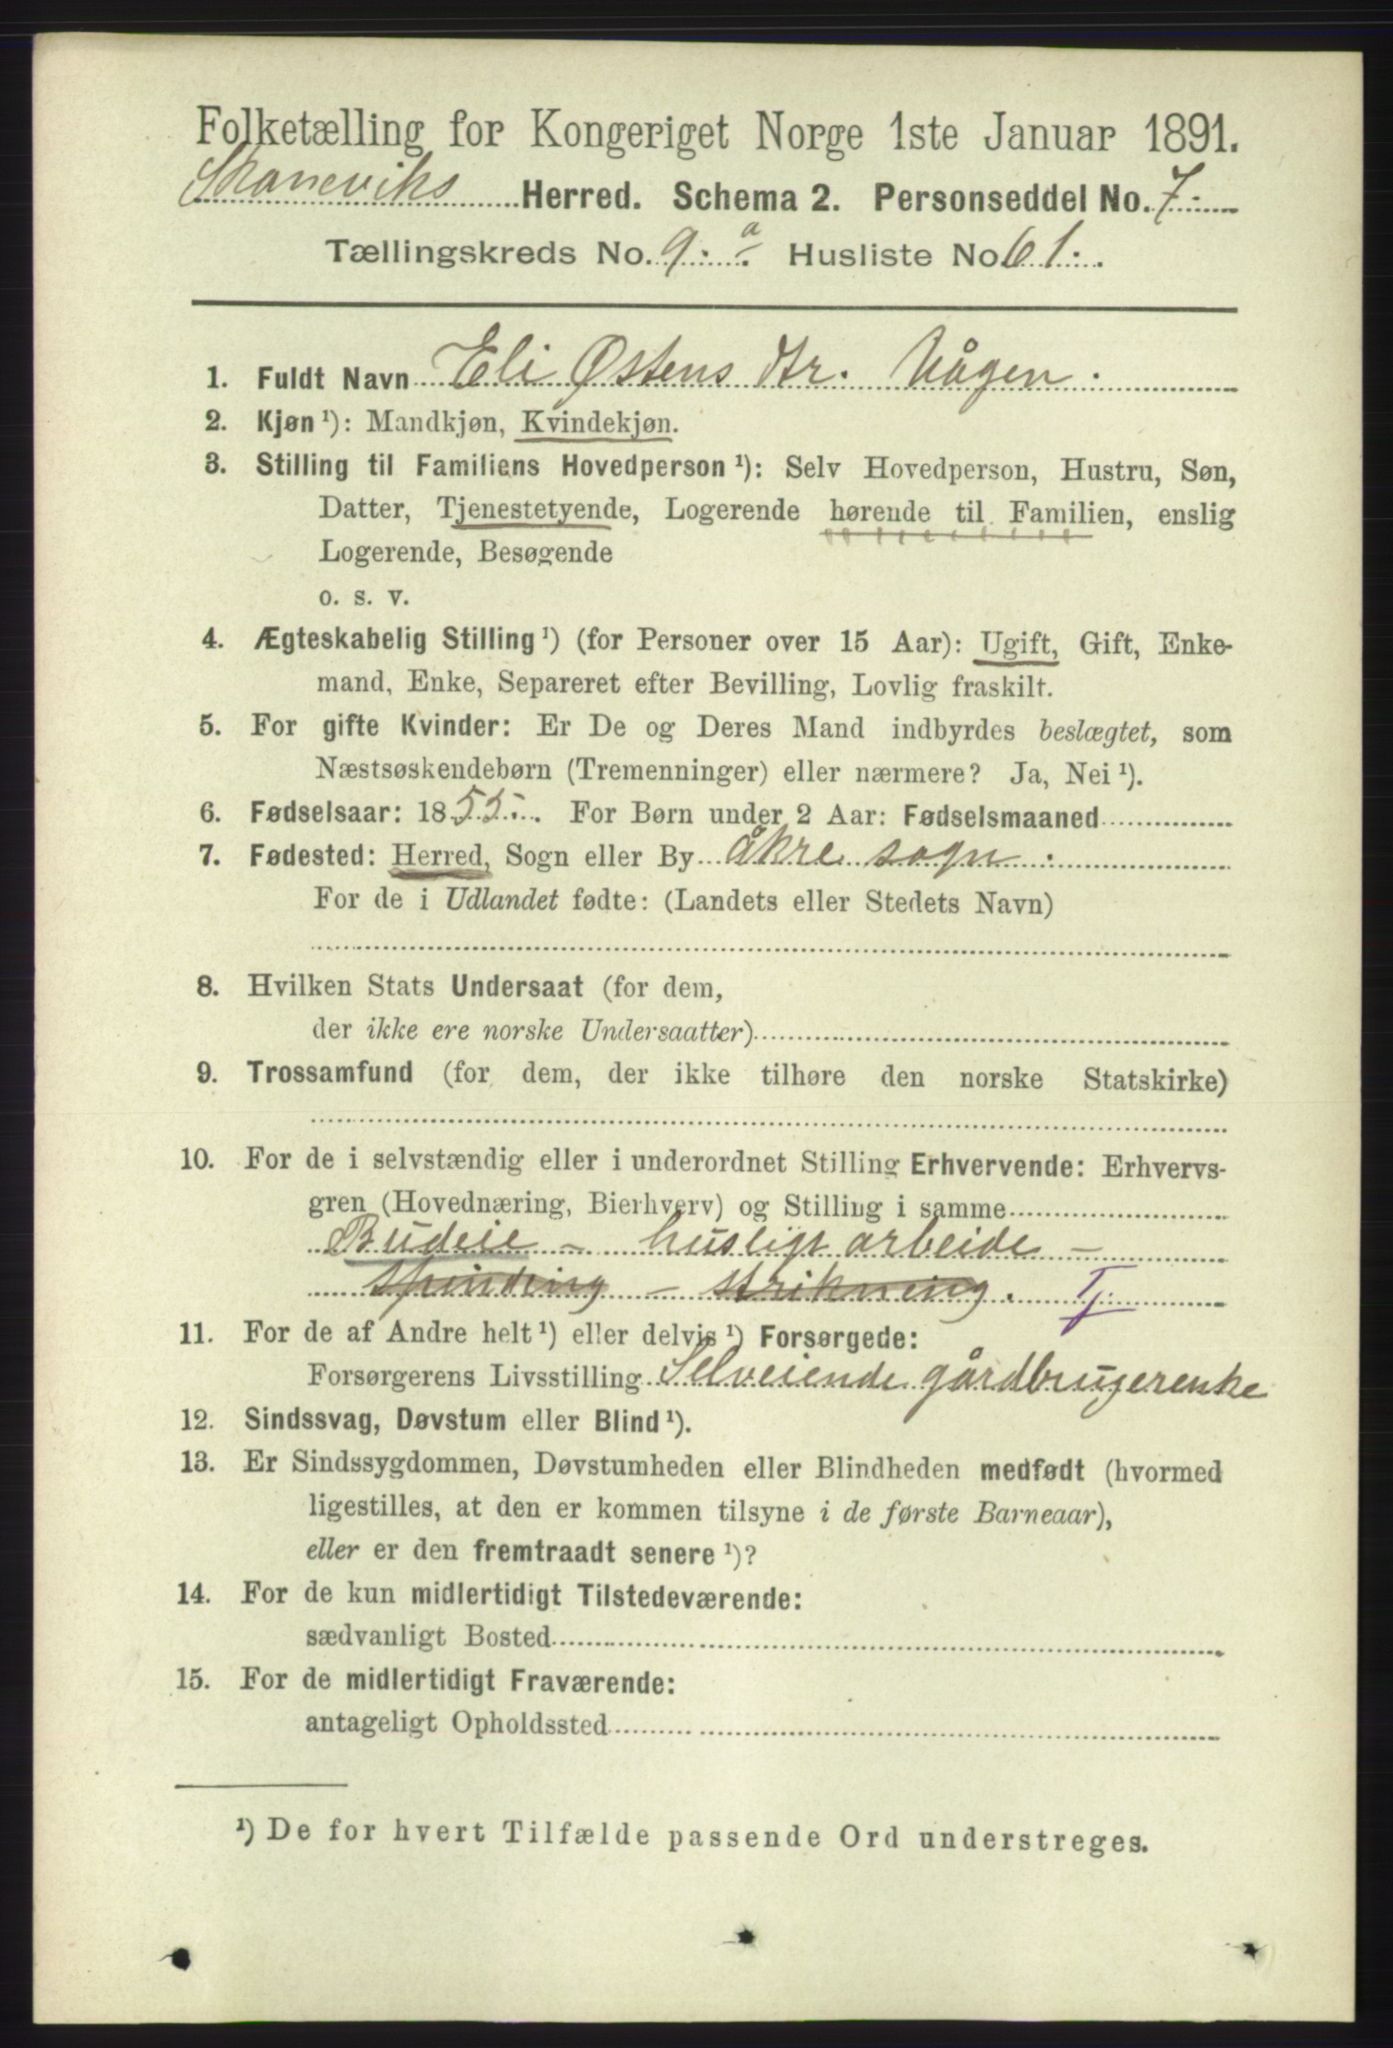 Folketælling for Kongeriget Norge 1ste Januar 1891.
Skaneviks Herred. Schema 2. Personseddel No. 7.
Tællingskreds No. 9. a. Husliste No. 61.
1. Fuldt Navn Eli Østens dtr. Vågen.
2. Kjøn ¹): Mandkjøn, Kvindekjøn.
3. Stilling til Familiens Hovedperson ¹): Selv Hovedperson, Hustru, Søn,
Datter, Tjenestetyende, Logerende hørende til Familien, enslig
Logerende, Besøgende
o. s. v.
4. Ægteskabelig Stilling ¹) (for Personer over 15 Aar): Ugift, Gift, Enke-
mand, Enke, Separeret efter Bevilling, Lovlig fraskilt.
5. For gifte Kvinder: Er De og Deres Mand indbyrdes beslægtet, som
Næstsøskendebørn (Tremenninger) eller nærmere? Ja, Nei ¹).
6. Fødselsaar: 1855. For Børn under 2 Aar: Fødselsmaaned
7. Fødested: Herred, Sogn eller By åkre sogn.
For de i Udlandet fødte: (Landets eller Stedets Navn)
8. Hvilken Stats Undersaat (for dem,
der ikke ere norske Undersaatter)
9. Trossamfund (for dem, der ikke tilhøre den norske Statskirke)
10. For de i selvstændig eller i underordnet Stilling Erhvervende: Erhvervs-
gren (Hovednæring, Bierhverv) og Stilling i samme
Budeie - husligt arbeide -
spinding - strikning. Tj.
11. For de af Andre helt ¹) eller delvis ¹) Forsørgede:
Forsørgerens Livsstilling Selveiende gårdbrugerenke
12. Sindssvag, Døvstum eller Blind ¹).
13. Er Sindssygdommen, Døvstumheden eller Blindheden medfødt (hvormed
ligestilles, at den er kommen tilsyne i de første Barneaar),
eller er den fremtraadt senere ¹)?
14. For de kun midlertidigt Tilstedeværende:
sædvanligt Bosted
15. For de midlertidigt Fraværende:
antageligt Opholdssted
¹) De for hvert Tilfælde passende Ord understreges.